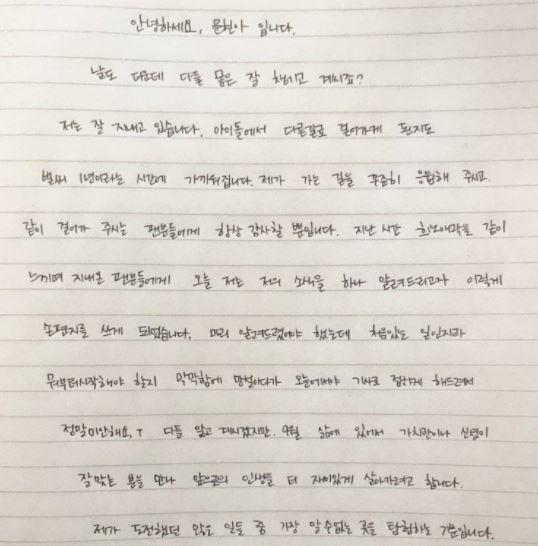 안녕하세요, 문현아 입니다.
날도 더운데 다들 몸은 잘 챙기고 계시죠?
저는 잘 지내고 있습니다, 아이돌에서 다른길로 걸어가게 된지도
벌써 1년이라는 시간에 가까워집니다. 제가 가는 길을 꾸준히 응원해 주시고
같이 걸어가 주시는 팬분들에게 항상 감사할 뿐입니다. 지난 시간 희노애락을 같이
느끼며 지내온 팬분들에게 오늘 저는 저의 소식을 하나 알려드리고자 이렇게
손편지를 쓰게 되었습니다, 미리 알려드렸어야 했는데 처음있는 일인지라
뭐부터시작해야 할지 막막함에 망설이다가 오늘에서야 기사로 접하게 해드려서
정말미안해요,ㅜ 다들 알고 계시겠지만. 9월 삶에 있어서 가치관이나 신념이
잘맞는 분을 만나 앞으로의 인생을 더 재미있게 살아가려고 합니다.
제가 도전했던 않은 일들 중 가장 알수없는 곳을 탐험하는 기분입니다.